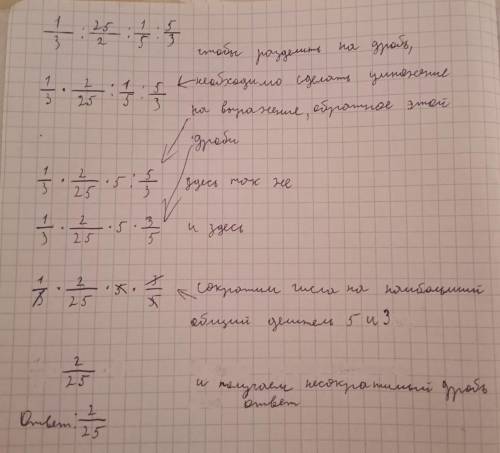 1/3 : 25/2 : 1/5 : 5/3
чтобы разделить на дробь,
1/3 · 2/25 : 1/5 : 5/3 необходимо сделать умножение
на выражение, обратное этой
дроби
1/3 · 2/25 · 5 : 5/3 здесь так же
1/3 · 2/25 · 5 · 3/5 и здесь
1/3 · 2/25 · 5 · 3/5 сократим числа на наибольший
общий делитель 5 и 3
2/25 и получаем несократимый дробь
ответ
Ответ: 2/25